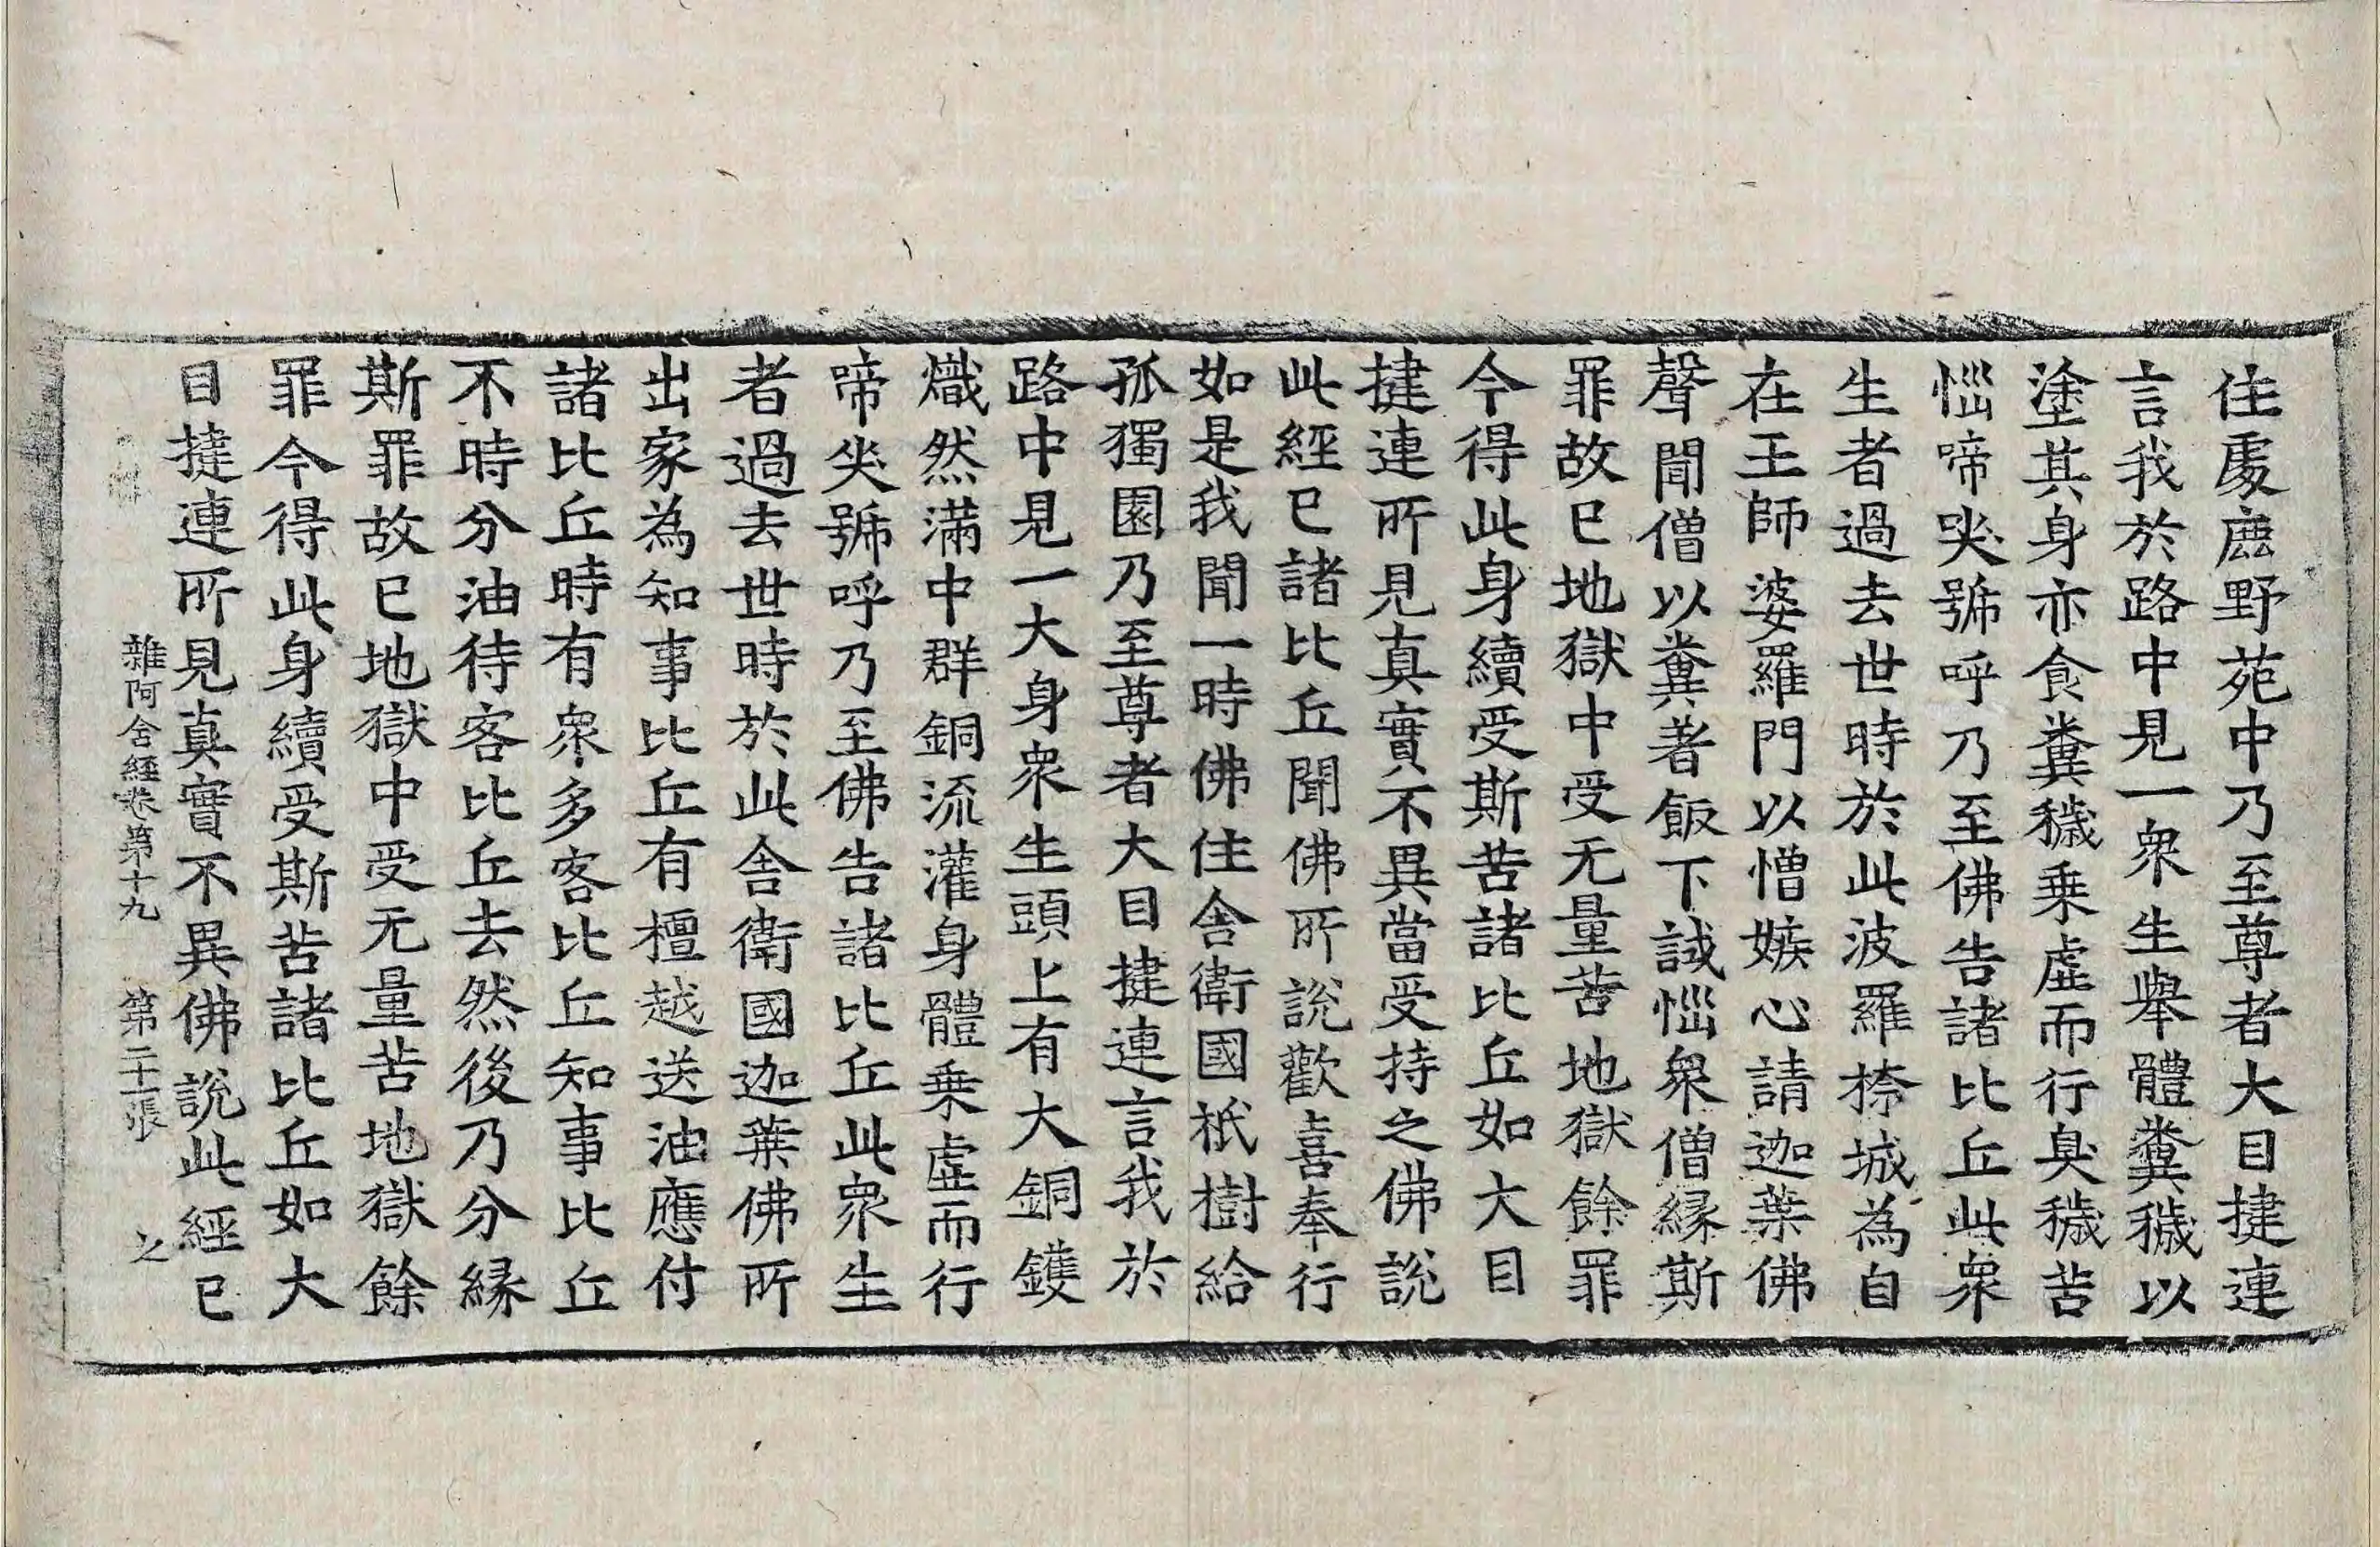 住處鹿野苑中乃至尊者大目揵連
言我於路中見一衆生舉體糞穢以
塗其身亦食糞穢乗虛而行臭穢苦
惱啼哭號呼乃至佛告諸比丘此衆
生者過去世時於此波羅㮈城為自
在王師婆羅門以憎嫉心請迦葉佛
聲聞僧以糞著飯下試惱衆僧縁斯
罪故已地獄中受无量苦地獄餘罪
今得此身續受斯苦諸比丘如大目
揵連所見真實不異當受持之佛說
此經已諸比丘聞佛所說歡喜奉行
如是我聞一時佛住舍衛國祇樹給
孤獨園乃至尊者大目揵連言我於
路中見一大身衆生頭上有大銅鑊
熾然滿中群銅流灌身體乗虛而行
啼哭號呼乃至佛告諸比丘此衆生
者過去世時於此舍衛國迦葉佛所
出家為知事比丘有檀越送油應付
諸比丘時有衆多客比丘知事比丘
不時分油待客比丘去然後乃分縁
斯罪故已地獄中受无量苦地獄餘
罪今得此身續受斯苦諸比丘如大
目揵連所見真實不異佛說此經已
雜阿含經卷第十九 第二十一張 之